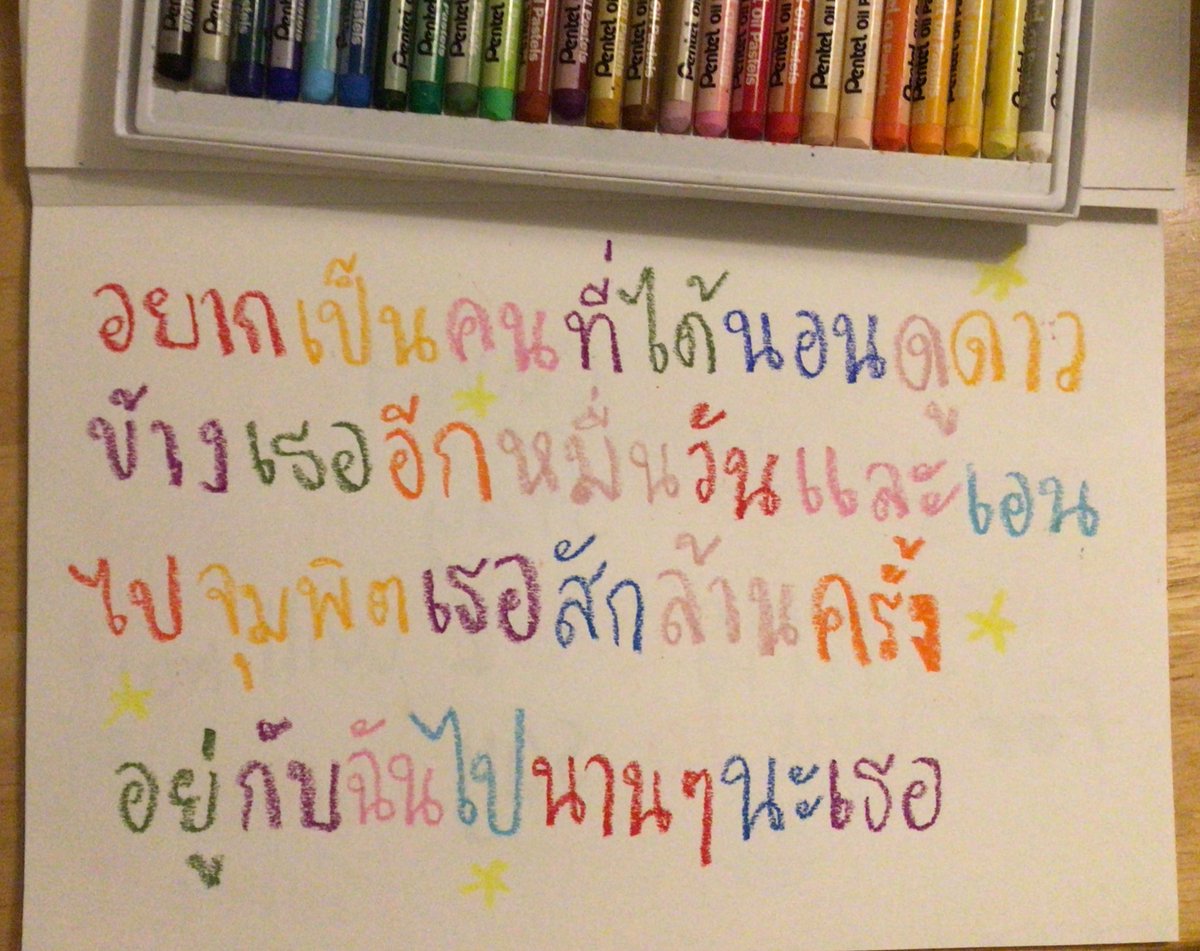 Pentel Oil Pastels
อยากเป็นคนที่ได้นอนดูดาว
ข้างเธออีกหมื่นวันและเอน
ไปจุมพิตเธอสักล้านครั้ง
อยู่กับฉันไปนานๆนะเธอ